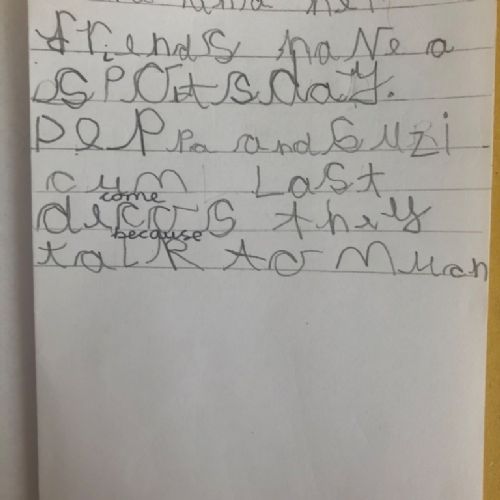 friends have a
SPOrtsday.
PePPa and Suzi
cum Last
come
decos they
because
taLK to Much